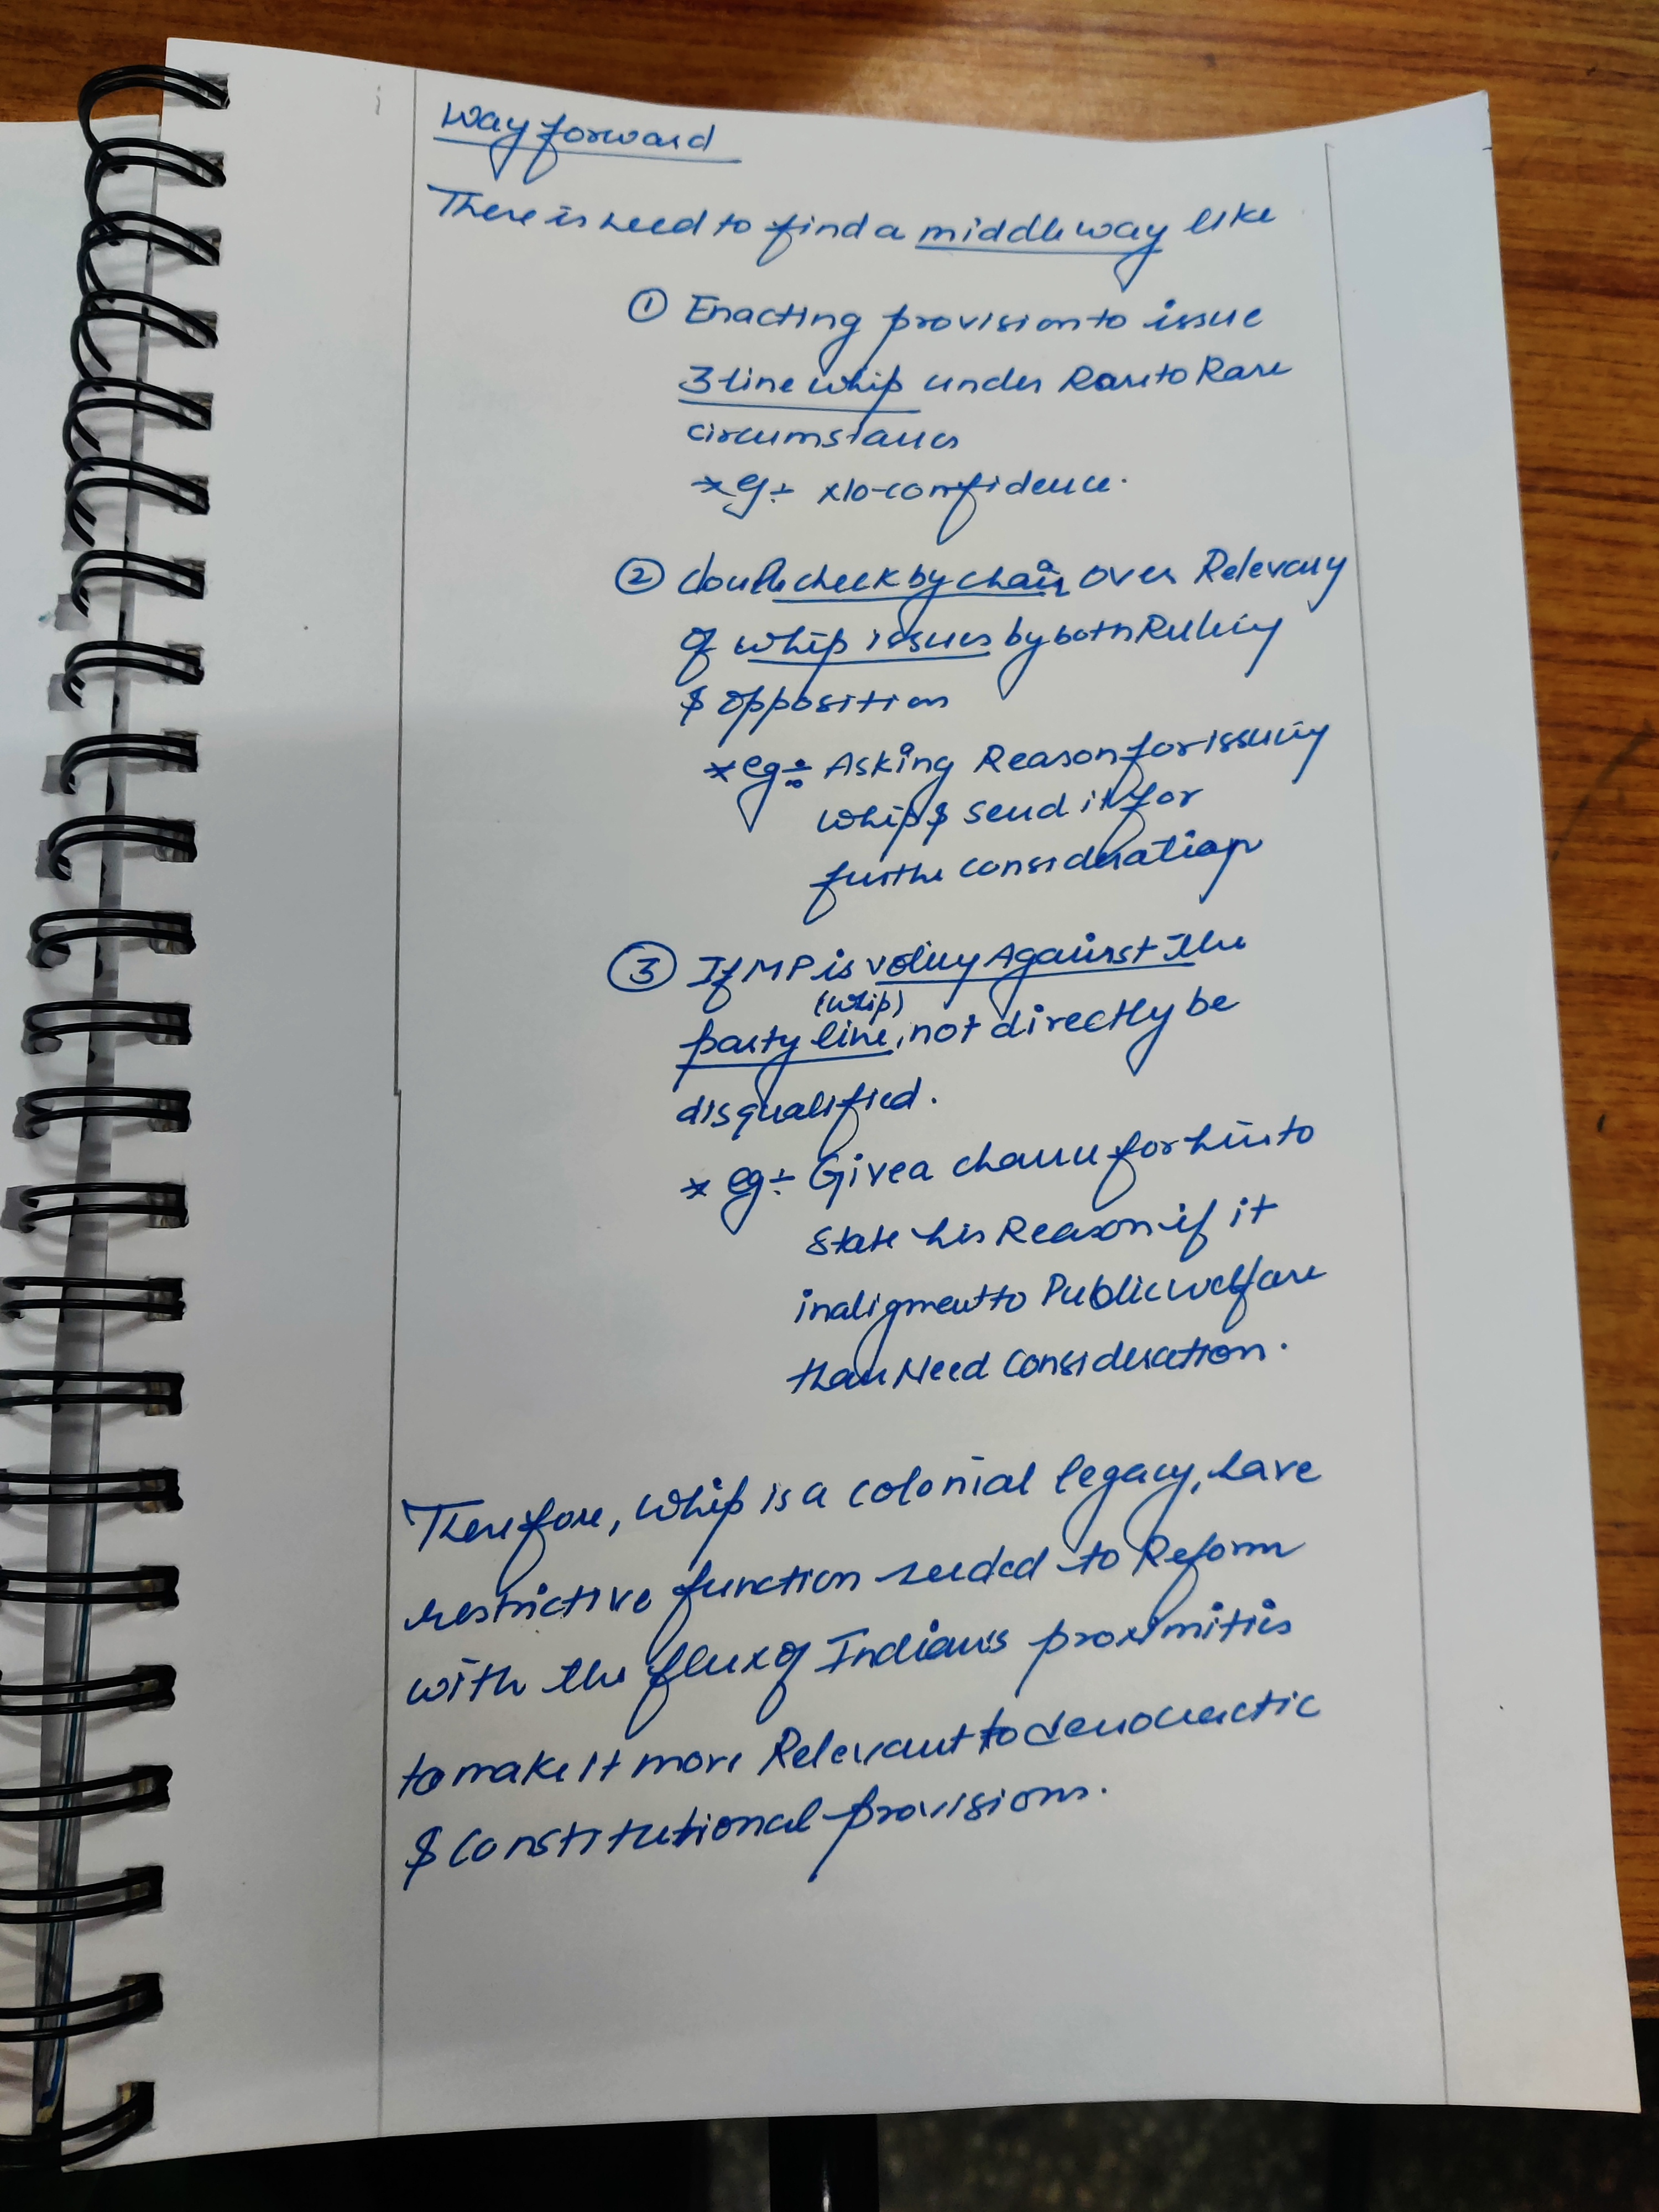 Way forward
There is need to find a middle way like
① Enacting provision to issue
3-line whip under Rare to Rare
circumstances
* eg÷ No-confidence.
② double check by chair over Relevancy
of whip issues by both Ruling
& opposition
* eg÷ Asking Reason for issuing
whip & send it for
further consideration
③ If MP is voting Against the
(whip)
party line, not directly be
disqualified.
* eg÷ Give a chance for him to
State his Reason if it
in aligment to Public welfare
than Need Consideration.
Therefore, whip is a colonial legacy, have
restrictive function needed to Reform
with the flux of Indians proximities
to make it more Relevant to democractic
& constitutional provisions.